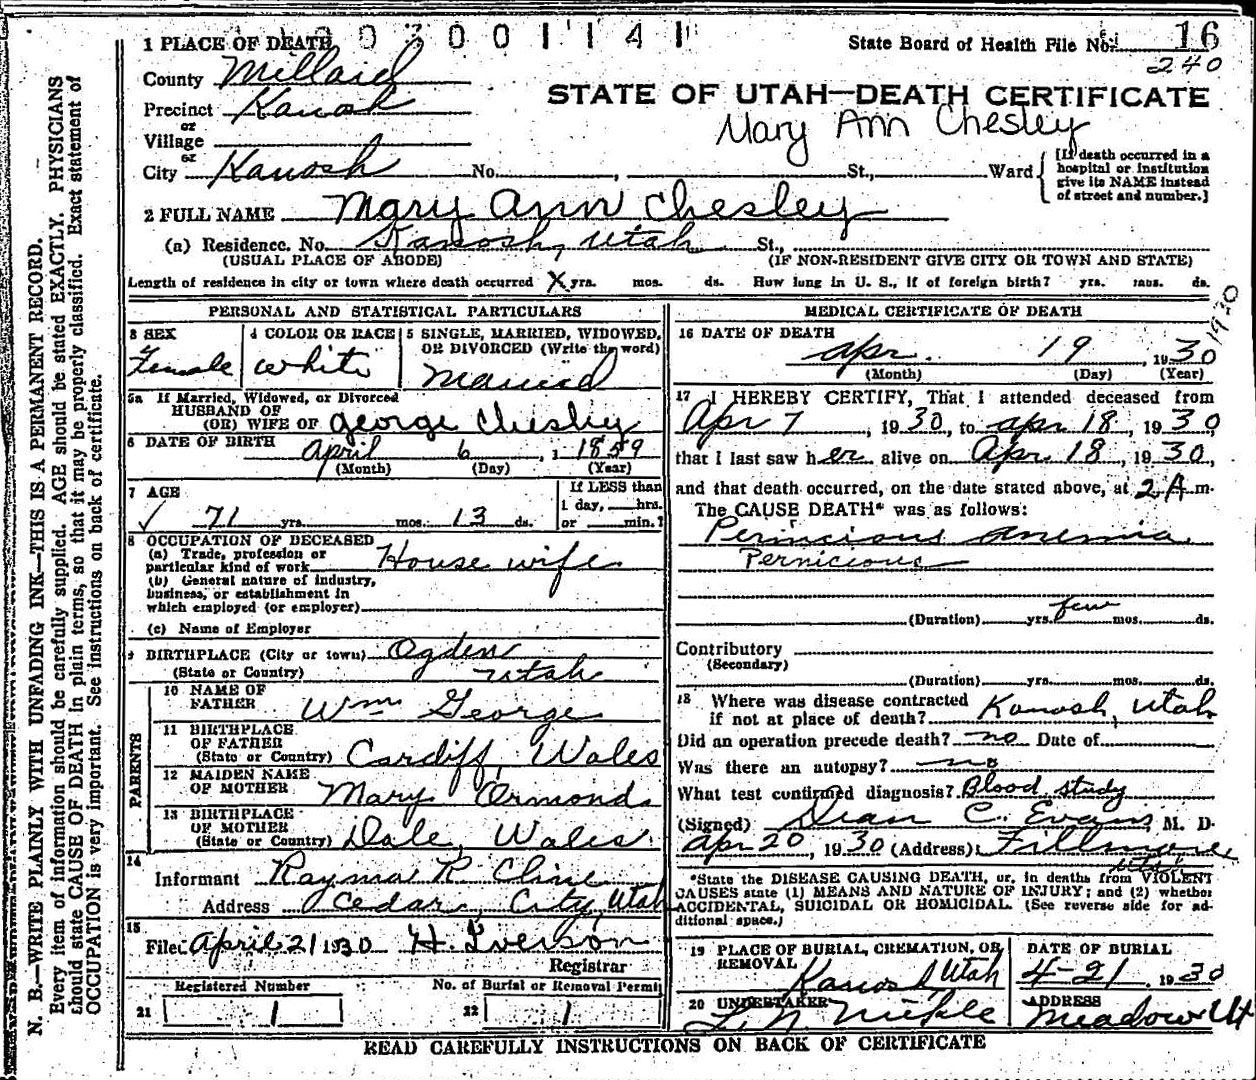 1 PLACE OF DEATH
0 3 0 0 1 1 4 1
State Board of Health File No. 16
240
County Millard
STATE OF UTAH—DEATH CERTIFICATE
Precinct Kanosh
Mary Ann Chesley
or
Village
or
City Kanosh No. , St., Ward
[If death occurred in a hospital or institution give its NAME instead of street and number.]
2 FULL NAME Mary Ann Chesley
(a) Residence. No. Kanosh, Utah St.,
(USUAL PLACE OF ABODE) (IF NON-RESIDENT GIVE CITY OR TOWN AND STATE)
Length of residence in city or town where death occurred X yrs. mos. ds. How long in U. S., if of foreign birth? yrs. mos. ds.
PERSONAL AND STATISTICAL PARTICULARS
3 SEX
Female
4 COLOR OR RACE
white
5 SINGLE, MARRIED, WIDOWED,
OR DIVORCED (Write the word)
Married
5a If Married, Widowed, or Divorced
HUSBAND OF
(OR) WIFE OF George Chesley
6 DATE OF BIRTH April 6, 1 1859
(Month) (Day) (Year)
7 AGE
✓ 71 yrs. mos. 13 ds.
If LESS than
1 day, hrs.
or min.?
8 OCCUPATION OF DECEASED
(a) Trade, profession or
particular kind of work House wife
(b) General nature of industry,
business, or establishment in
which employed (or employer)
(c) Name of Employer
9 BIRTHPLACE (City or town) Ogden
(State or Country) Utah
PARENTS
10 NAME OF
FATHER Wm George
11 BIRTHPLACE
OF FATHER
(State or Country) Cardiff, Wales
12 MAIDEN NAME
OF MOTHER Mary Ormond
13 BIRTHPLACE
OF MOTHER
(State or Country) Dale, Wales
14
Informant Raymal R Cline
Address Cedar City, Utah
15
Filed April 21 1930 H. Iverson
Registrar
Registered Number No. of Burial or Removal Permit
21 1 22 1
MEDICAL CERTIFICATE OF DEATH
1930
16 DATE OF DEATH
Apr. 19, 1930
(Month) (Day) (Year)
17 I HEREBY CERTIFY, That I attended deceased from
Apr 7, 1930, to Apr 18, 1930,
that I last saw her alive on Apr. 18, 1930,
and that death occurred, on the date stated above, at 2 A m.
The CAUSE DEATH* was as follows:
Pernicious anemia
Pernicious
(Duration) yrs. few mos. ds.
Contributory
(Secondary)
(Duration) yrs. mos. ds.
18 Where was disease contracted
if not at place of death? Kanosh, Utah
Did an operation precede death? no Date of
Was there an autopsy? no
What test confirmed diagnosis? Blood study
(Signed) Dean C. Evans, M. D.
Apr 20, 1930 (Address) Fillmore
Utah
*State the DISEASE CAUSING DEATH, or, in deaths from VIOLENT
CAUSES state (1) MEANS AND NATURE OF INJURY; and (2) whether
ACCIDENTAL, SUICIDAL OR HOMICIDAL. (See reverse side for ad-
ditional space.)
19 PLACE OF BURIAL, CREMATION, OR
REMOVAL
Kanosh, Utah
DATE OF BURIAL
4-21. 1930
20 UNDERTAKER
L. N. Nickle
ADDRESS
Meadow Ut
READ CAREFULLY INSTRUCTIONS ON BACK OF CERTIFICATE
N. B.—WRITE PLAINLY WITH UNFADING INK—THIS IS A PERMANENT RECORD.
Every item of information should be carefully supplied. AGE should be stated EXACTLY. PHYSICIANS
should state CAUSE OF DEATH in plain terms, so that it may be properly classified. Exact statement of
OCCUPATION is very important. See instructions on back of certificate.